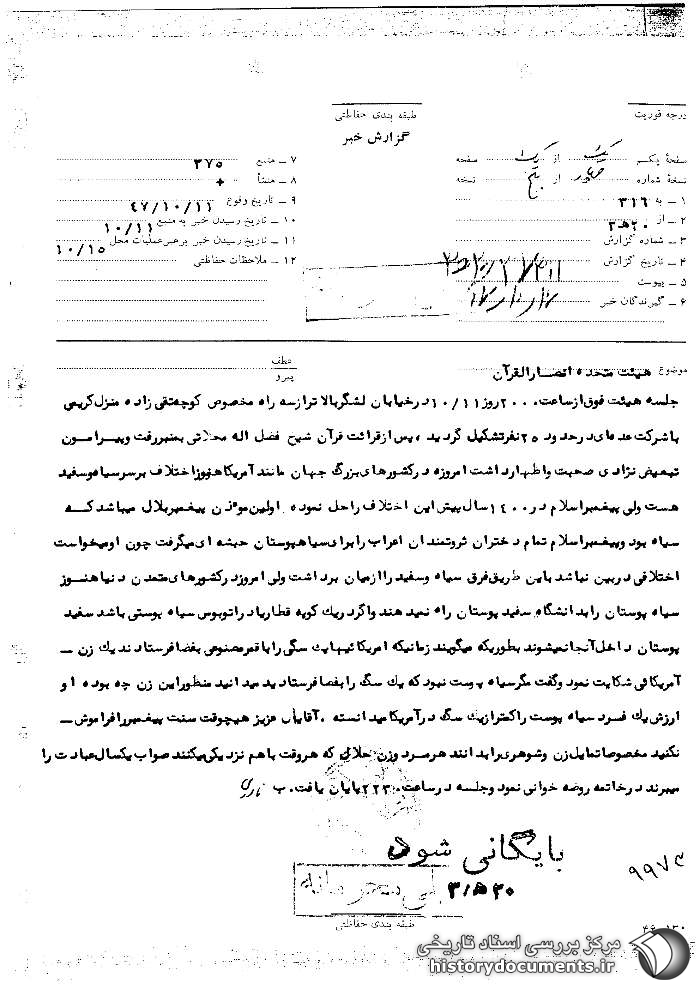 درجه فوریت
طبقه بندی حفاظتی
گزارش خبر
صفحهٔ یکم از یک صفحه
نسخهٔ شماره چهار از پنج نسخه
۱ ـ به ۳۱۶
۲ ـ از ۲۰ ه‍ ۳
۳ ـ شماره گزارش
۴ ـ تاریخ گزارش
۵ ـ پیوست
۶ ـ گیرندگان خبر
۷ ـ منبع ۳۷۵
۸ ـ منشأ +
۹ ـ تاریخ وقوع ۴۷/۱۰/۱۱
۱۰ ـ تاریخ رسیدن خبر به منبع ۱۰/۱۱
۱۱ ـ تاریخ رسیدن خبر برهبرعملیات محل ۱۰/۱۵
۱۲ ـ ملاحظات حفاظتی
موضوع هیئت متحده انصارالقرآن
عطف
پیرو
جلسه هیئت فوق ازساعت ۲۰۰۰ روز ۱۰/۱۱ درخیابان لشگربالاترازسه راه مخصوص کوچه تقی زاده منزل کریمی
باشرکت عده ای درحدود ۲۵ نفرتشکیل گردید ، پس ازقرائت قرآن شیخ فضل اله محلاتی بمنبررفت وپیرامون
تبعیض نژادی صحبت واظهارداشت امروزه درکشورهای بزرگ جهان مانند آمریکا هنوزاختلاف برسرسیاه وسفید
هست ولی پیغمبراسلام در ۱۴۰۰ سال پیش این اختلاف راحل نموده اولین موذن پیغمبربلال میباشد کـه
سیاه بود وپیغمبراسلام تمام دختران ثروتمندان اعراب رابرای سیاهپوستان حبشه ای میگرفت چون اومیخواست
اختلافی دربین نباشد باین طریق فرق سیاه وسفید راازمیان برداشت ولی امروزدرکشورهای متمدن دنیا هنـوز
سیاه پوستان رابدانشگاه سفید پوستان راه نمید هند واگردریك کوپه قطاریاد راتوبوس سیاه پوستی باشد سفید
پوستان داخل آنجا نمیشوند بطوریکه میگویند زمانیکه امریکائیها یك سگی رابا قمرمصنوعی بفضا فرستادند یك زن ـ
آمریکائی شکایت نمود وگفت مگرسیاه پوست نبود که یك سگ رابفضا فرستادید میدانید منظوراین زن چه بوده او
ارزش یك فـرد سیاه پوست راکمترازیك سگ درآمریکا میدانسته . آقایان عزیز هیچوقت سنت پیغمبررافراموش ـ
نکنید مخصوصا تمایل زن وشوهری رابدانند هرمرد وزن حلالی که هروقت باهم نزدیکی میکنند صواب یکسال عبادت را
میبرند درخاتمه روضه خوانی نمود وجلسه درساعت ۲۲۳۰ پایان یافت . ب
بایگانی شود
۲۰ ه‍ ۳
۹۹۷۳
خیلی محرمانه
طبقه بندی حفاظتی
مرکز بررسی اسناد تاریخی
historydocuments.ir